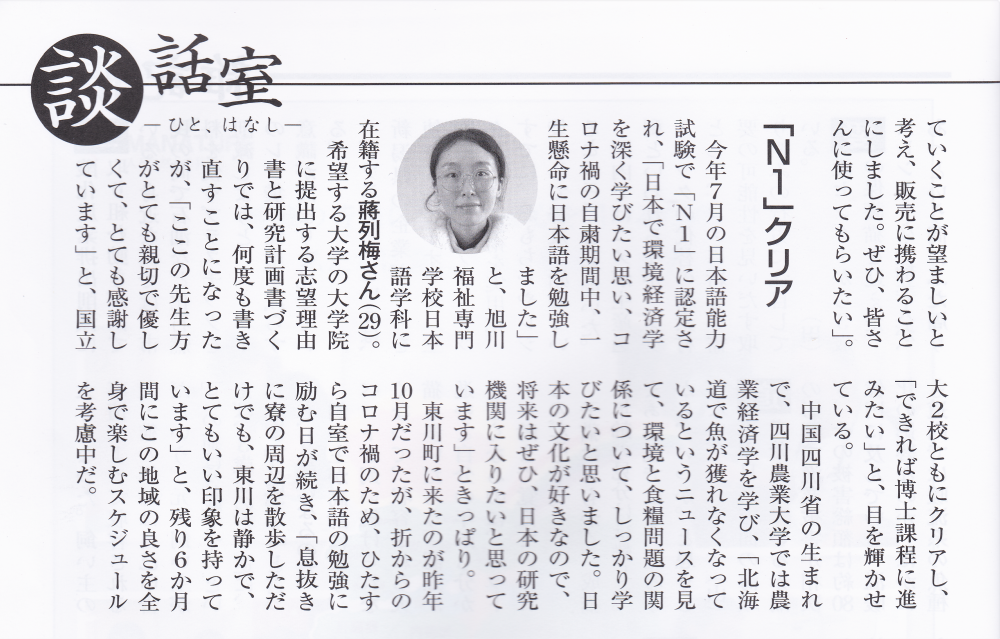 談話室
―ひと、はなし―
ていくことが望ましいと
考え、販売に携わること
にしました。ぜひ、皆さ
んに使ってもらいたい」。
「N1」クリア
今年7月の日本語能力
試験で「N1」に認定さ
れ、「日本で環境経済学
を深く学びたい思い、コ
ロナ禍の自粛期間中、一
生懸命に日本語を勉強し
ました」
と、旭川
福祉専門
学校日本
語学科に
在籍する蔣列梅さん(29)。
希望する大学の大学院
に提出する志望理由
書と研究計画書づく
りでは、何度も書き
直すことになった
が、「ここの先生方
がとても親切で優し
くて、とても感謝し
ています」と、国立
大2校ともにクリアし、
「できれば博士課程に進
みたい」と、目を輝かせ
ている。
中国四川省の生まれ
で、四川農業大学では農
業経済学を学び、「北海
道で魚が獲れなくなって
いるというニュースを見
て、環境と食糧問題の関
係について、しっかり学
びたいと思いました。日
本の文化が好きなので、
将来はぜひ、日本の研究
機関に入りたいと思って
います」ときっぱり。
東川町に来たのが昨年
10月だったが、折からの
コロナ禍のため、ひたす
ら自室で日本語の勉強に
励む日が続き、「息抜き
に寮の周辺を散歩しただ
けでも、東川は静かで、
とてもいい印象を持って
います」と、残り6か月
間にこの地域の良さを全
身で楽しむスケジュール
を考慮中だ。